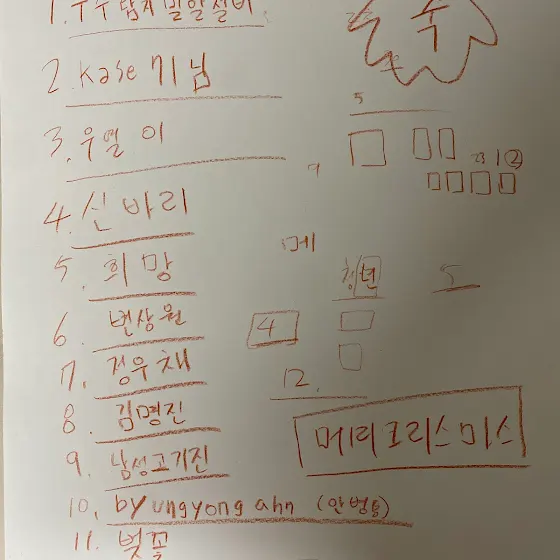 2. Kase 기님
3. 우열이
4. 신바리
5. 희망
6. 변상원
7. 정우채
8. 김명진
9. 남성고기진
10. byungyong ahn (안병용)
11. 벚꽃
수
5
23 1 ②
메
청년
5
4
12.
메리크리스미스